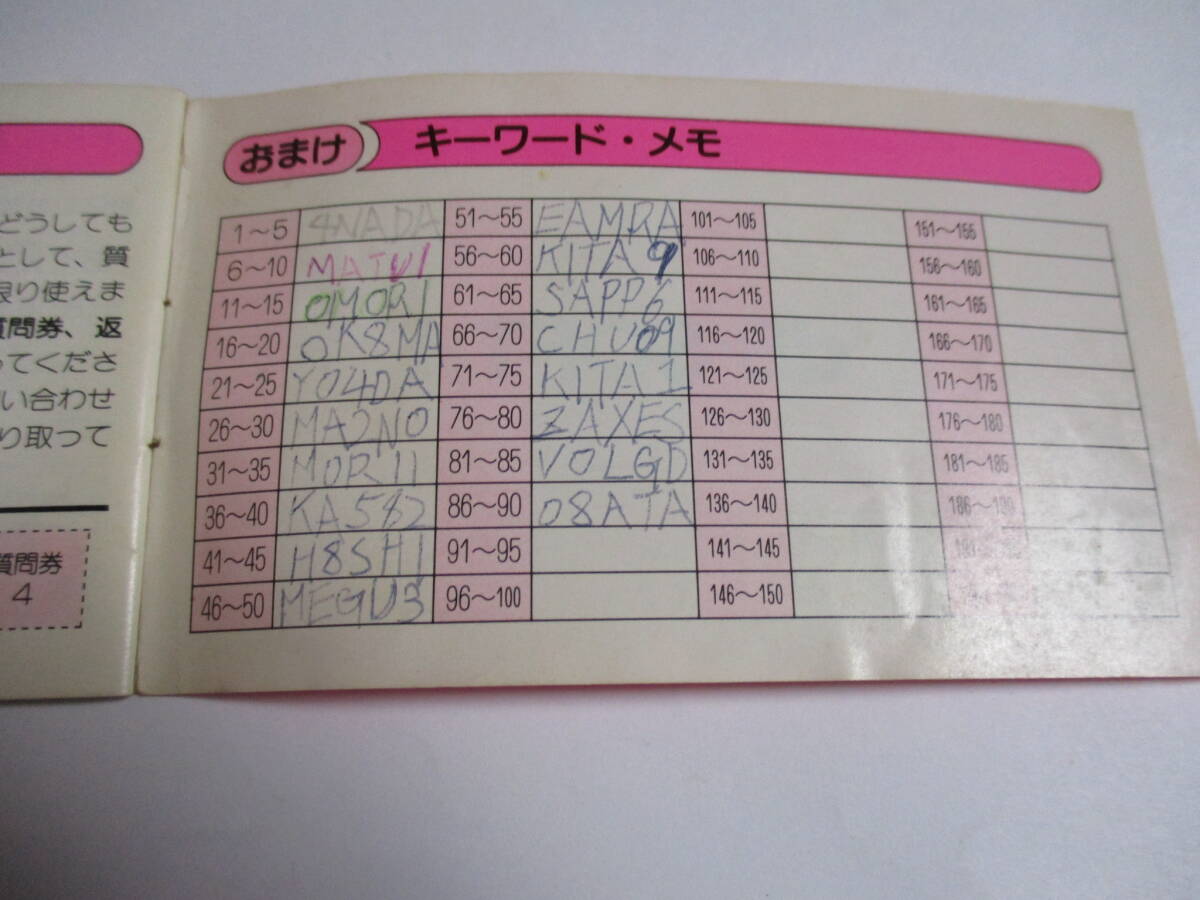 どうしても
として、質
限り使えま
質問券、返
ってくださ
い合わせ
り取って
質問券
4
おまけ キーワード・メモ
1～5 4NADA 51～55 EAMRA 101～105 151～155
6～10 MATU1 56～60 KITA9 106～110 156～160
11～15 OMORI 61～65 SAPP6 111～115 161～165
16～20 OK8MA 66～70 CHU09 116～120 166～170
21～25 YO4DA 71～75 KITA1 121～125 171～175
26～30 MA2NO 76～80 ZAXES 126～130 176～180
31～35 MOR11 81～85 VOLGD 131～135 181～185
36～40 KA582 86～90 08ATA 136～140
41～45 H8SHI 91～95 141～145
46～50 MEGU3 96～100 146～150